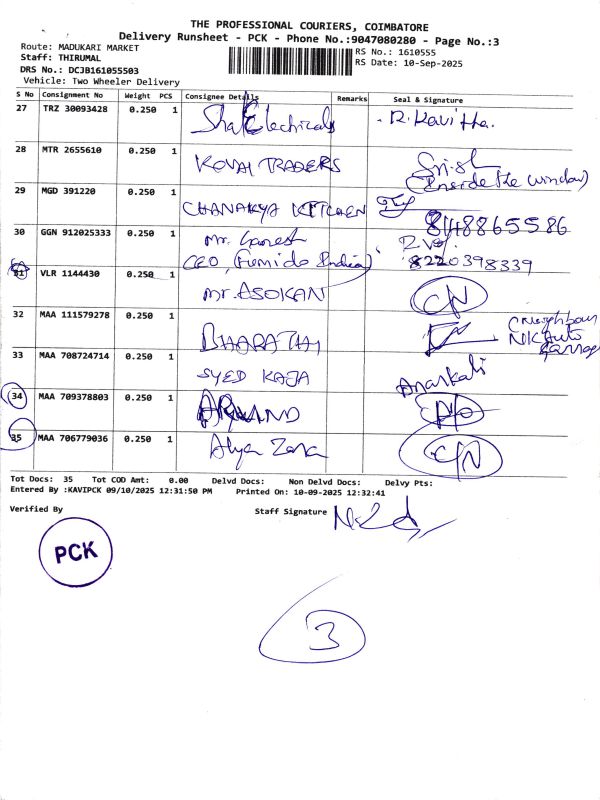 THE PROFESSIONAL COURIERS, COIMBATORE
Delivery Runsheet - PCK - Phone No.:9047080280 - Page No.:3
Route: MADUKARI MARKET
Staff: THIRUMAL
DRS No.: DCJB161055503
Vehicle: Two Wheeler Delivery
RS No.: 1610555
RS Date: 10-Sep-2025
S No Consignment No Weight PCS Consignee Details Remarks Seal & Signature
27 TRZ 30093428 0.250 1 Electricals R. Kavitha.
28 MTR 2655610 0.250 1 KOVAI TRADERS
(Inside the window)
29 MGD 391220 0.250 1 CHANAKYA KITCHEN
8148865586
30 GGN 912025333 0.250 1 Mr. Ganesh
CEO, (Fumido India)
8220398339
31 VLR 1144430 0.250 1 Mr. ASOKAN C/N
32 MAA 111579278 0.250 1 BHARATHI
(Neighbour
NK Auto
33 MAA 708724714 0.250 1 SYED KAJA Anarkali
34 MAA 709378803 0.250 1 ARVIND
35 MAA 706779036 0.250 1 Alya Zara C/N
Tot Docs: 35 Tot COD Amt: 0.00 Delvd Docs: Non Delvd Docs: Delvy Pts:
Entered By :KAVIPCK 09/10/2025 12:31:50 PM Printed On: 10-09-2025 12:32:41
Verified By Staff Signature
PCK
3